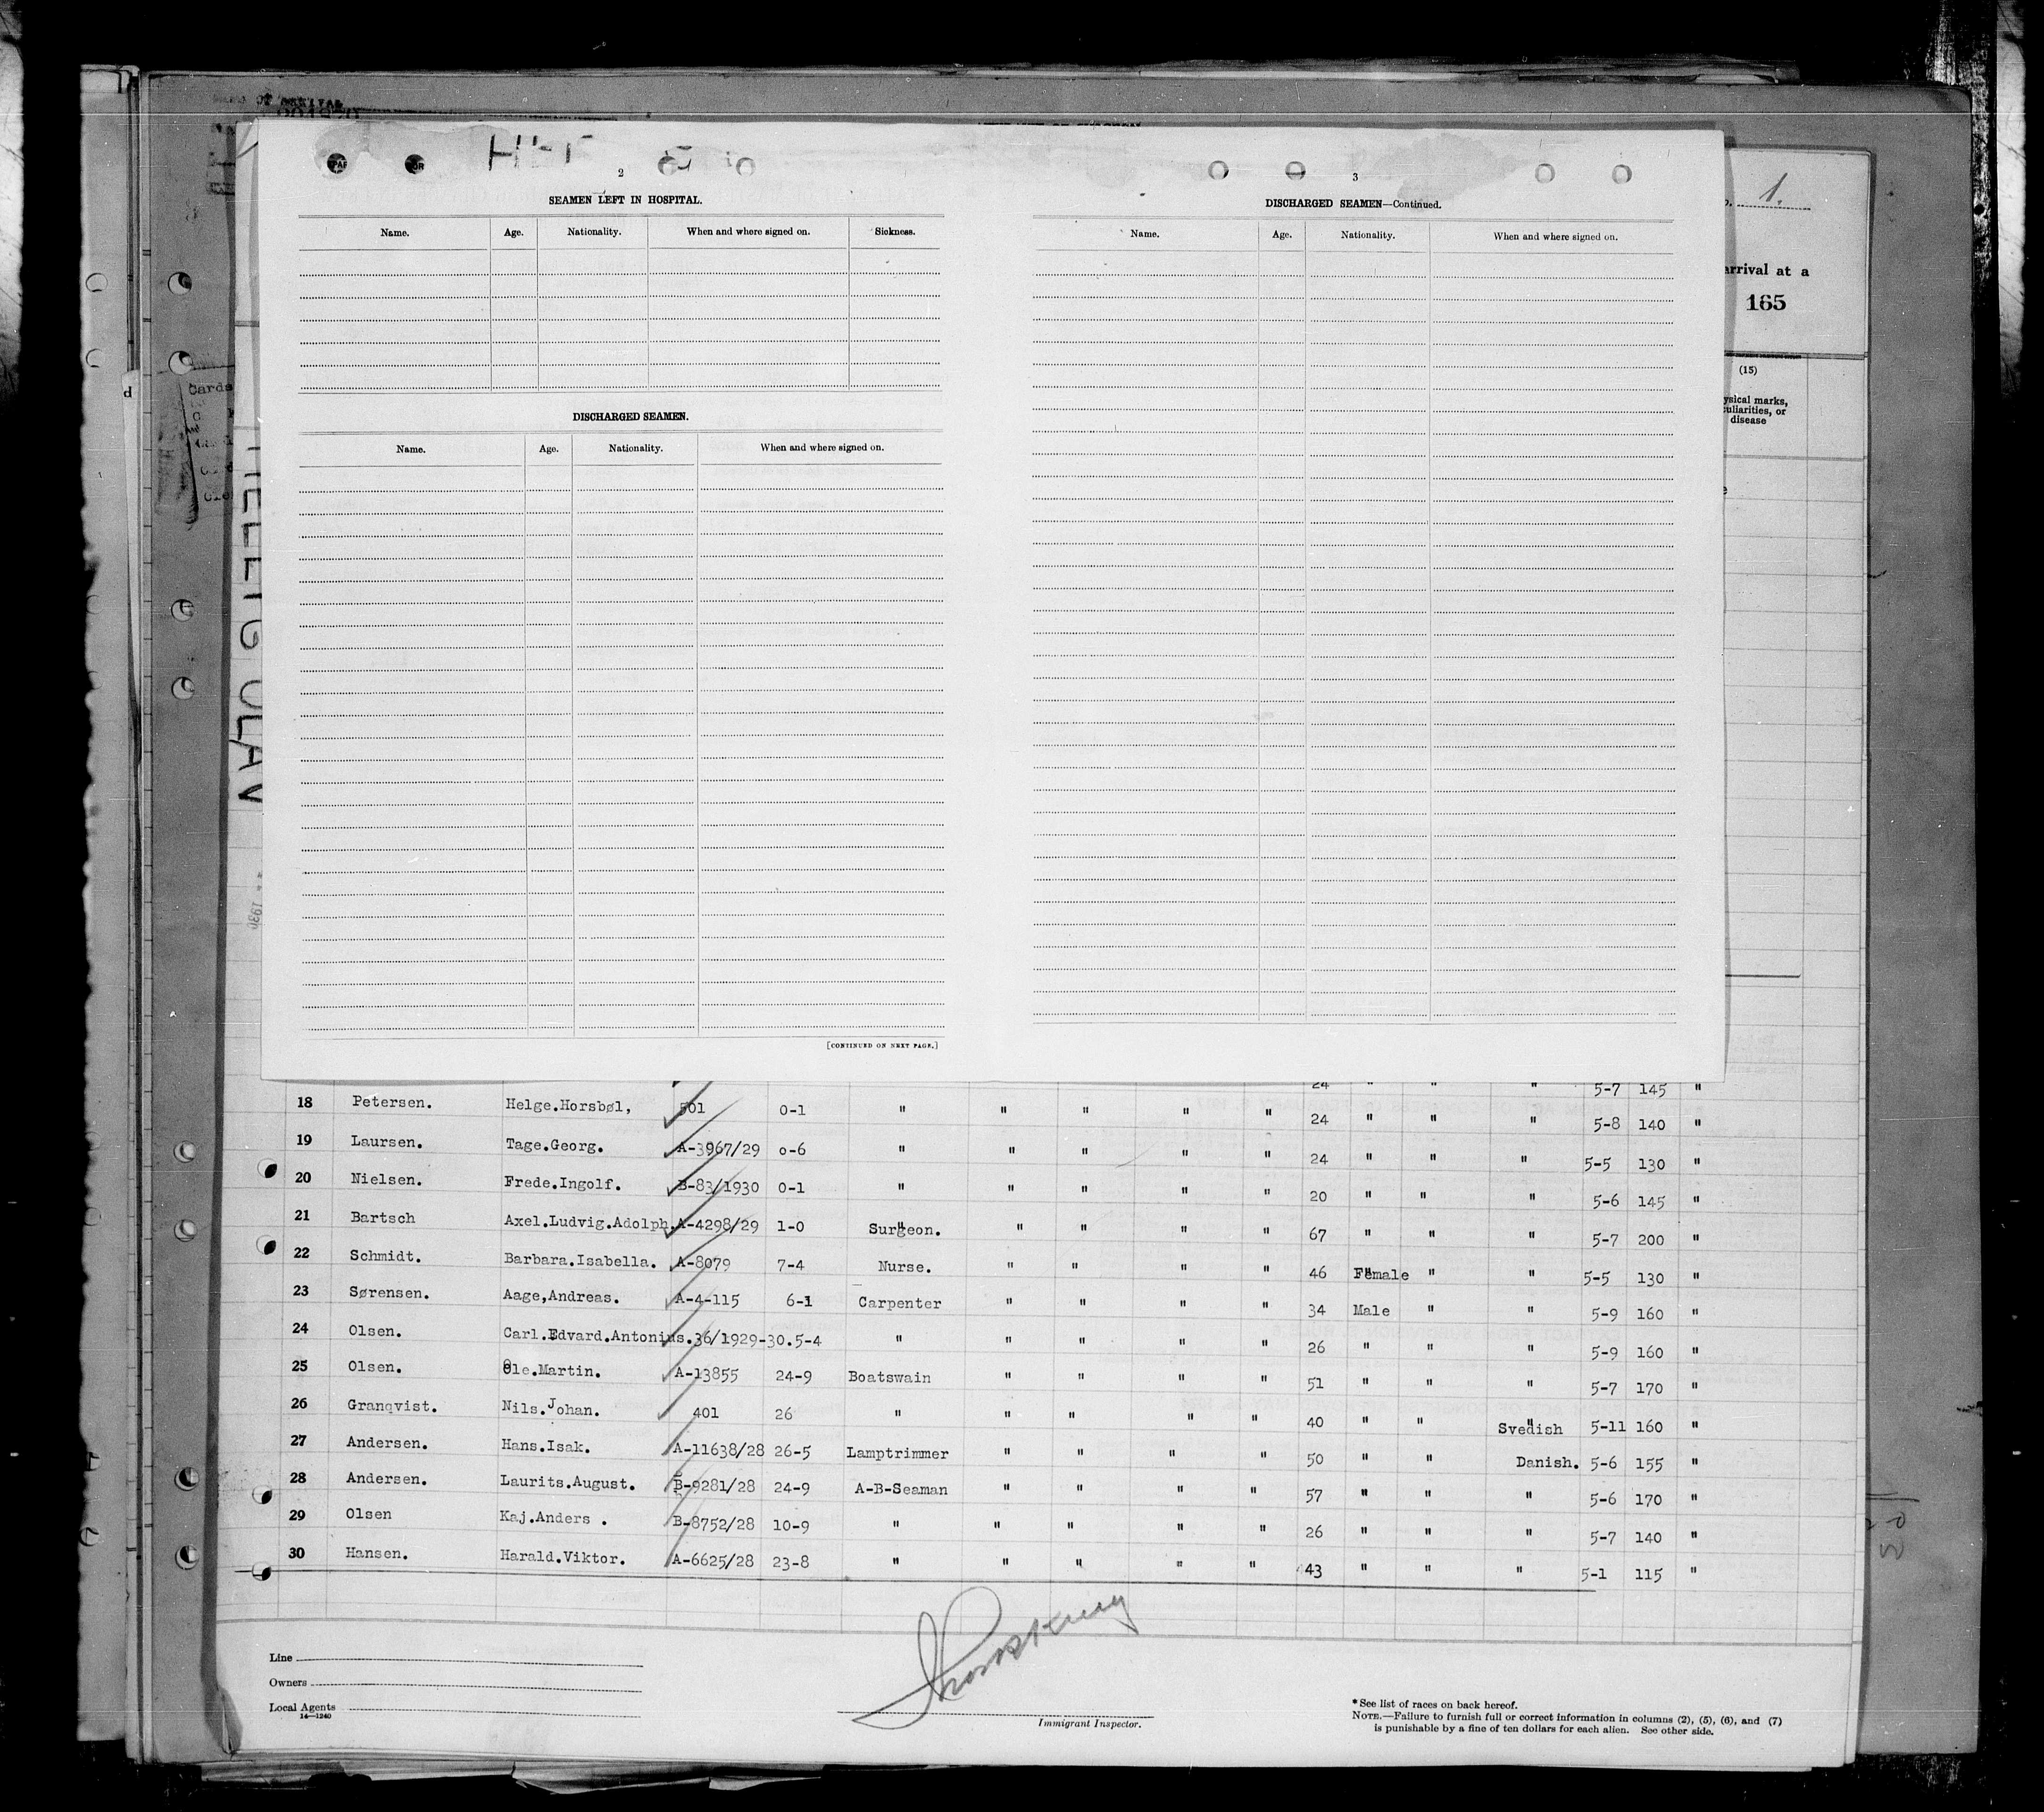 2
SEAMEN LEFT IN HOSPITAL.
Name. Age. Nationality. When and where signed on. Sickness.
DISCHARGED SEAMEN.
Name. Age. Nationality. When and where signed on.
[CONTINUED ON NEXT PAGE.]
3
DISCHARGED SEAMEN—Continued.
Name. Age. Nationality. When and where signed on.
1.
arrival at a
165
(15)
ysical marks,
culiarities, or
disease
HELLIG OLAV
1930
24 " " " 5-7 145 "
18 Petersen. Helge.Horsbøl, 501 0-1 " " " " " 24 " " " 5-8 140 "
19 Laursen. Tage.Georg. A-3967/29 0-6 " " " " " 24 " " " 5-5 130 "
20 Nielsen. Frede.Ingolf. B-83/1930 0-1 " " " " " 20 " " " 5-6 145 "
21 Bartsch Axel.Ludvig.Adolph. A-4298/29 1-0 Surgeon. " " " " 67 " " " 5-7 200 "
22 Schmidt. Barbara.Isabella. A-8079 7-4 Nurse. " " " " 46 Female " " 5-5 130 "
23 Sørensen. Aage,Andreas. A-4-115 6-1 Carpenter " " " " 34 Male " " 5-9 160 "
24 Olsen. Carl.Edvard.Antonius.36/1929-30.5-4 " " " " " 26 " " " 5-9 160 "
25 Olsen. Ole.Martin. A-13855 24-9 Boatswain " " " " 51 " " " 5-7 170 "
26 Granqvist. Nils.Johan. 401 26 " " " " " 40 " " Svedish 5-11 160 "
27 Andersen. Hans.Isak. A-11638/28 26-5 Lamptrimmer " " " " 50 " " Danish. 5-6 155 "
28 Andersen. Laurits.August. B-9281/28 24-9 A-B-Seaman " " " " 57 " " " 5-6 170 "
29 Olsen Kaj.Anders . B-8752/28 10-9 " " " " " 26 " " " 5-7 140 "
30 Hansen. Harald.Viktor. A-6625/28 23-8 " " " " " 43 " " " 5-1 115 "
Line
Owners
Local Agents
14—1240
Immigrant Inspector.
*See list of races on back hereof.
NOTE.—Failure to furnish full or correct information in columns (2), (5), (6), and (7)
is punishable by a fine of ten dollars for each alien. See other side.